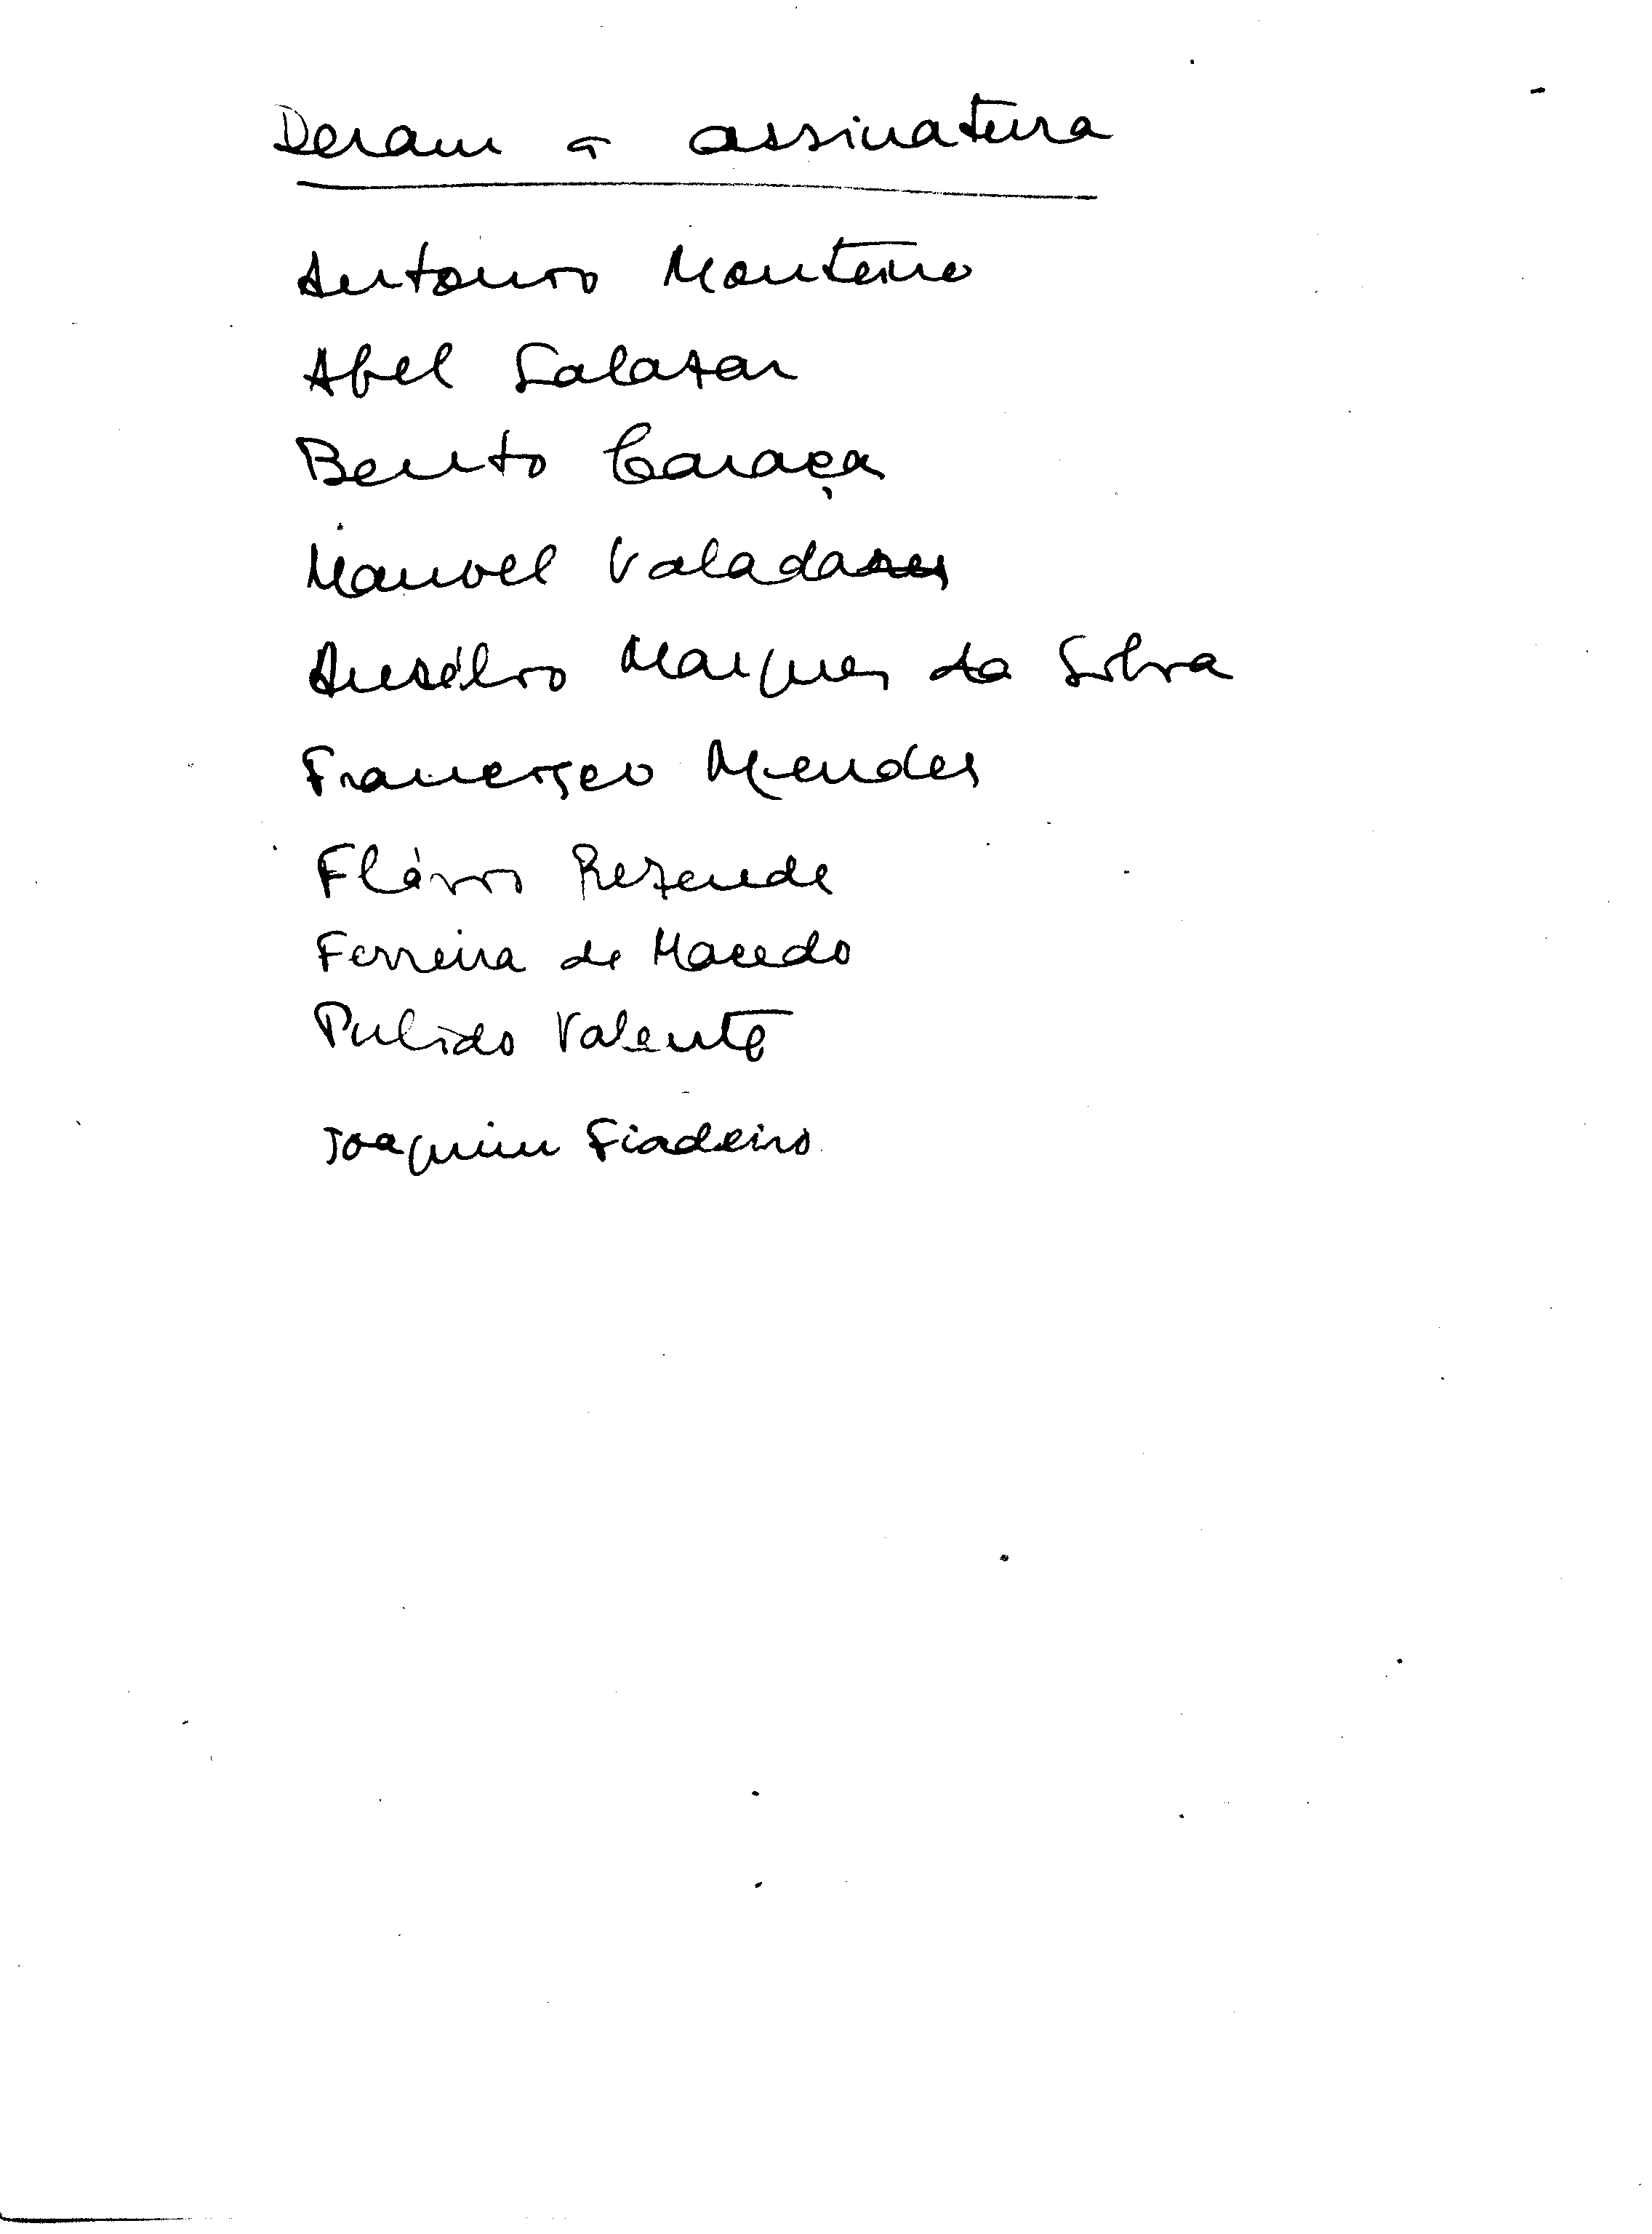 Deram a assinatura
Antonio Monteiro
Abel Salazar
Bento Caraça
Manuel Valadares
Aurélio Marques da Silva
Francisco Mendes
Flávio Rezende
Ferreira de Macedo
Pulido Valente
Joaquim Fiadeiro